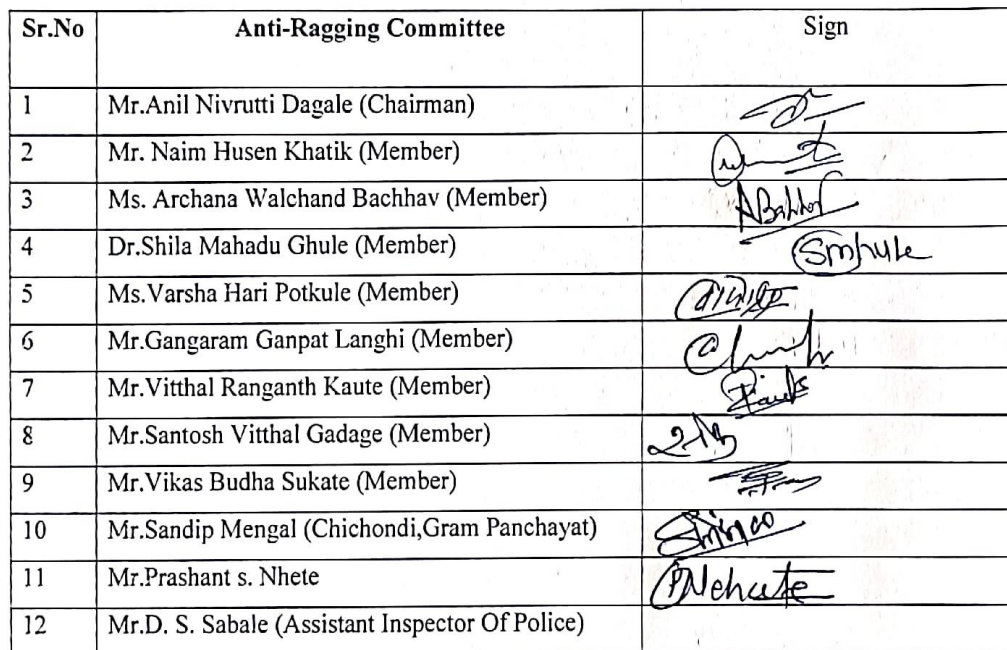 Sr.No Anti-Ragging Committee Sign
1 Mr.Anil Nivrutti Dagale (Chairman)
2 Mr. Naim Husen Khatik (Member)
3 Ms. Archana Walchand Bachhav (Member)
4 Dr.Shila Mahadu Ghule (Member)
5 Ms.Varsha Hari Potkule (Member)
6 Mr.Gangaram Ganpat Langhi (Member)
7 Mr.Vitthal Ranganth Kaute (Member)
8 Mr.Santosh Vitthal Gadage (Member)
9 Mr.Vikas Budha Sukate (Member)
10 Mr.Sandip Mengal (Chichondi,Gram Panchayat)
11 Mr.Prashant s. Nhete
12 Mr.D. S. Sabale (Assistant Inspector Of Police)